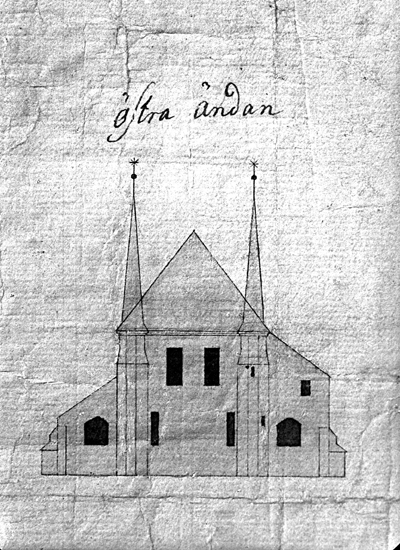 östra ändan